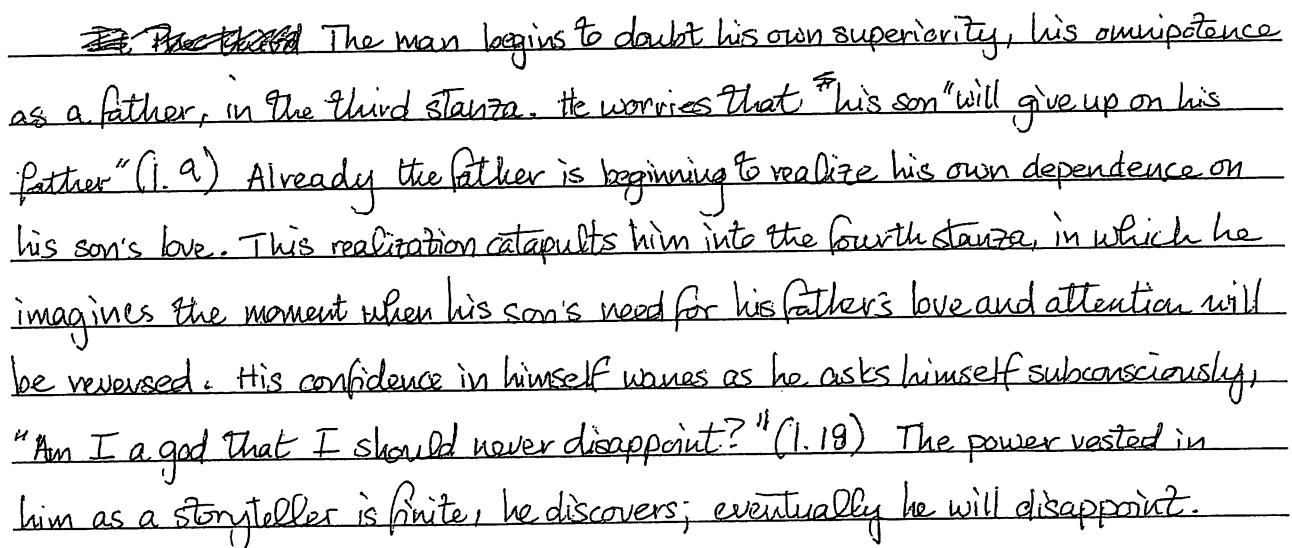 The man begins to doubt his own superiority, his omnipotence
as a father, in the third stanza. He worries that his son "will give up on his
father" (l. 9) Already the father is beginning to realize his own dependence on
his son's love. This realization catapults him into the fourth stanza, in which he
imagines the moment when his son's need for his father's love and attention will
be reversed. His confidence in himself wanes as he asks himself subconsciously,
"Am I a god that I should never disappoint?" (l. 19) The power vested in
him as a storyteller is finite, he discovers; eventually he will disappoint.